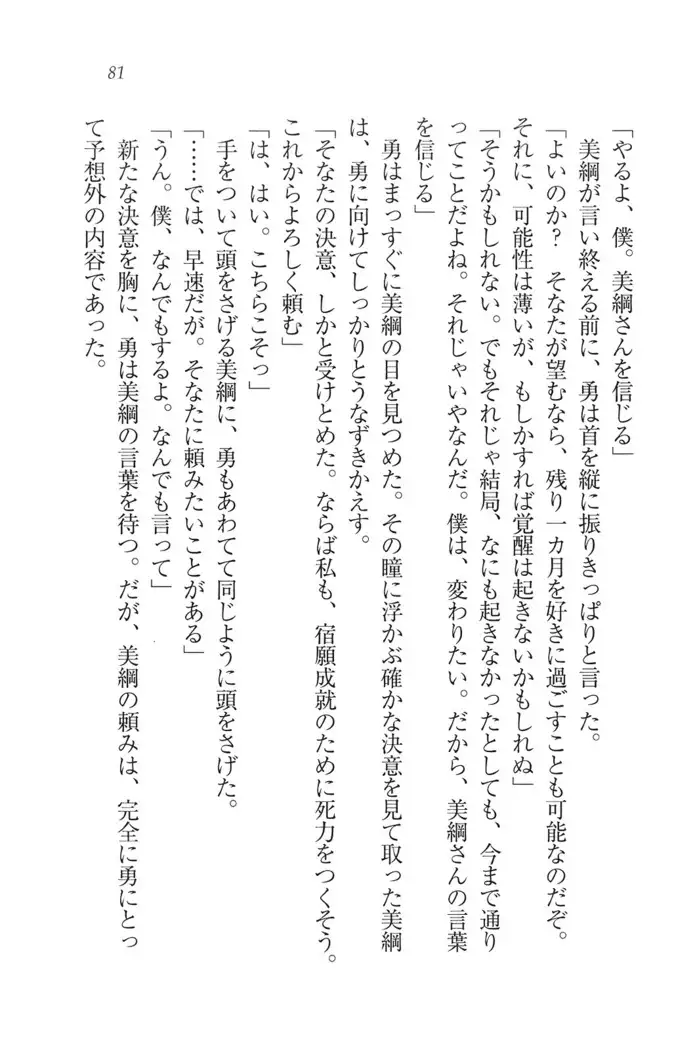 81
「やるよ、僕。美綱さんを信じる」
美綱が言い終える前に、勇は首を縦に振りきっぱりと言った。
「よいのか？　そなたが望むなら、残り一カ月を好きに過ごすことも可能なのだぞ。
それに、可能性は薄いが、もしかすれば覚醒は起きないかもしれぬ」
「そうかもしれない。でもそれじゃ結局、なにも起きなかったとしても、今まで通り
ってことだよね。それじゃいやなんだ。僕は、変わりたい。だから、美綱さんの言葉
を信じる」
勇はまっすぐに美綱の目を見つめた。その瞳に浮かぶ確かな決意を見て取った美綱
は、勇に向けてしっかりとうなずきかえす。
「そなたの決意、しかと受けとめた。ならば私も、宿願成就のために死力をつくそう。
これからよろしく頼む」
「は、はい。こちらこそっ」
手をついて頭をさげる美綱に、勇もあわてて同じように頭をさげた。
「……では、早速だが。そなたに頼みたいことがある」
「うん。僕、なんでもするよ。なんでも言って」
新たな決意を胸に、勇は美綱の言葉を待つ。だが、美綱の頼みは、完全に勇にとっ
て予想外の内容であった。